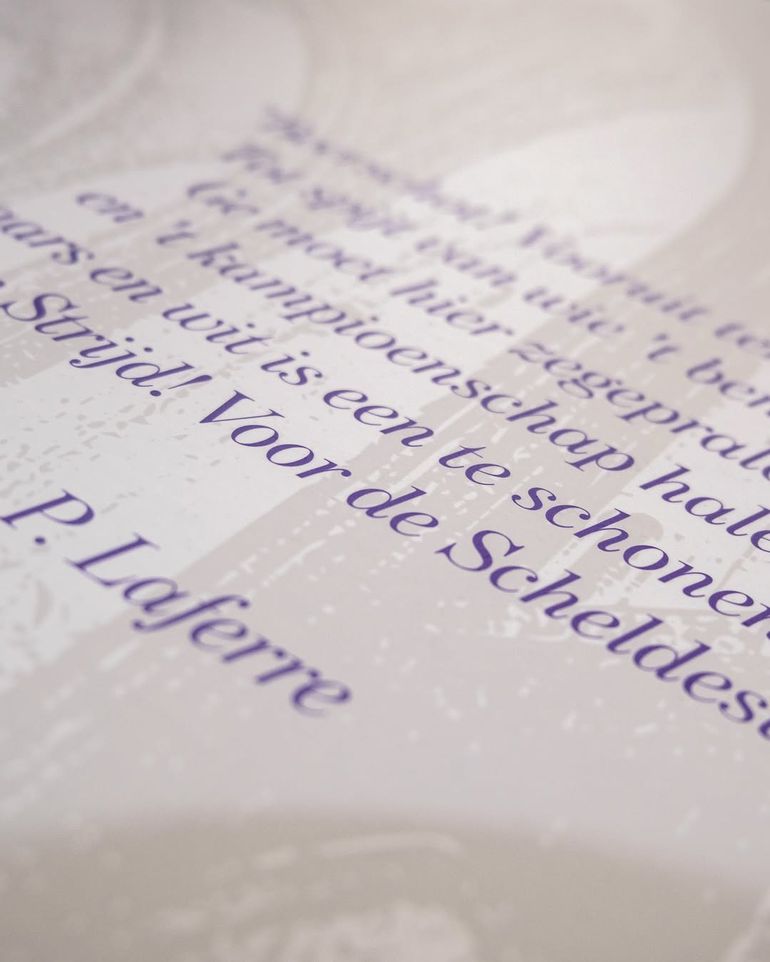 Beerschot! Vooruit ter
Tot spijt van wie 't ben
Ge moet hier zegeprale
en 't kampioenschap hale
aars en wit is een te schonen
Strijd! Voor de Scheldest
P. Laferre